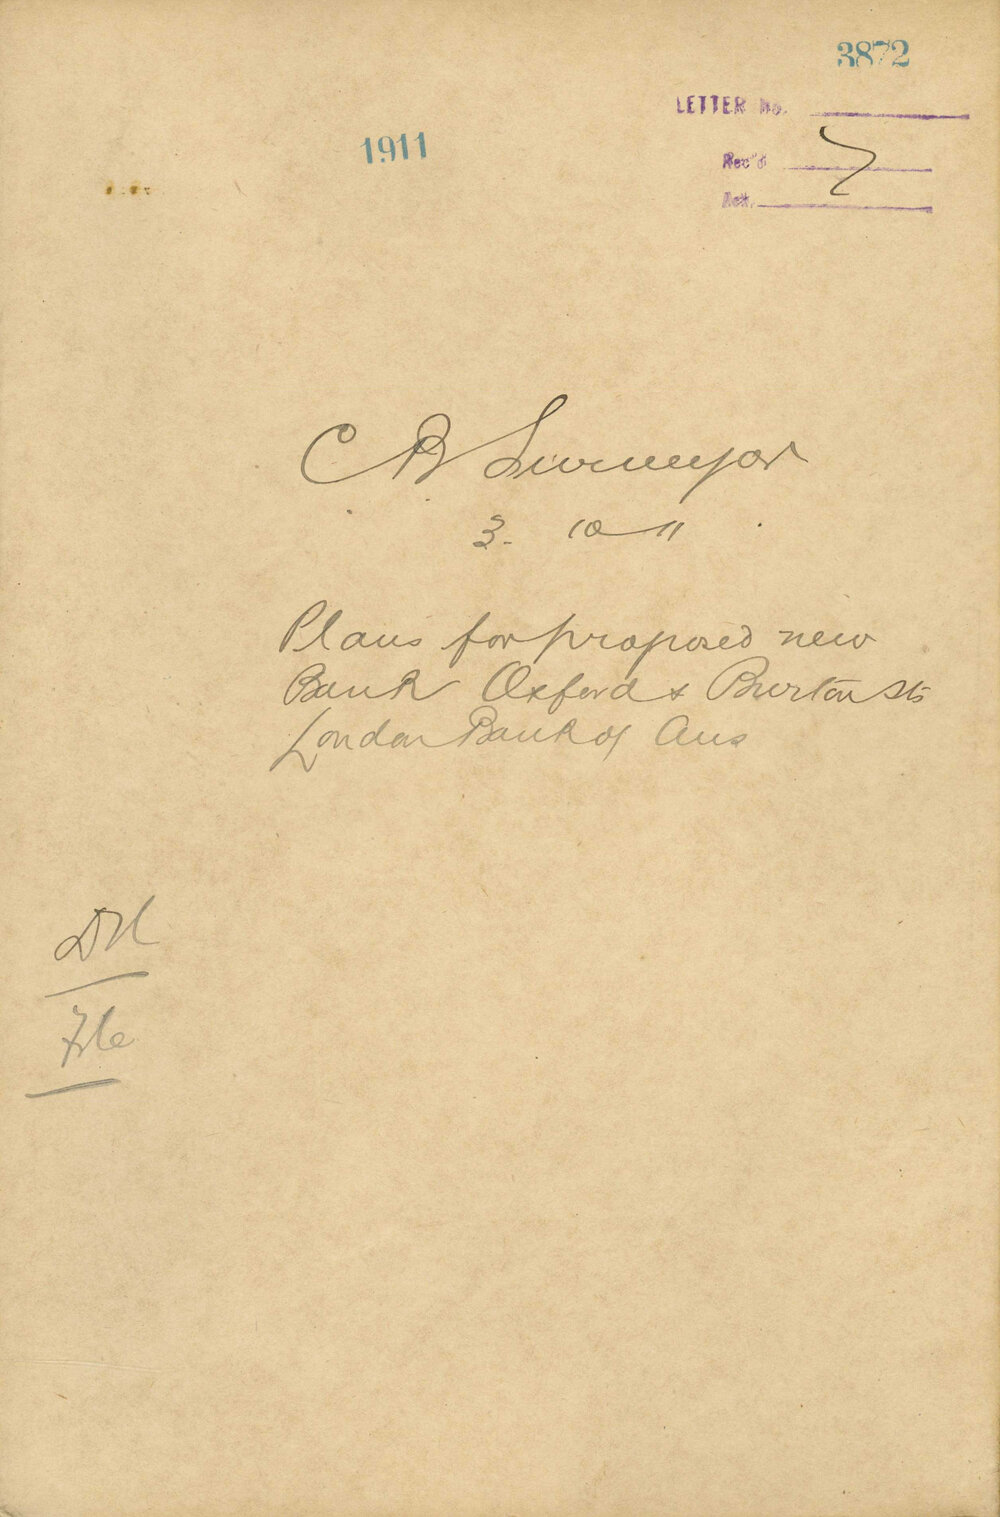 3872
LETTER No.
1911
Rec'd
Ack.
C B Surveyor
3. 10 11
Plans for proposed new
Bank Oxford & Burton Sts
London Bank of Aus
File